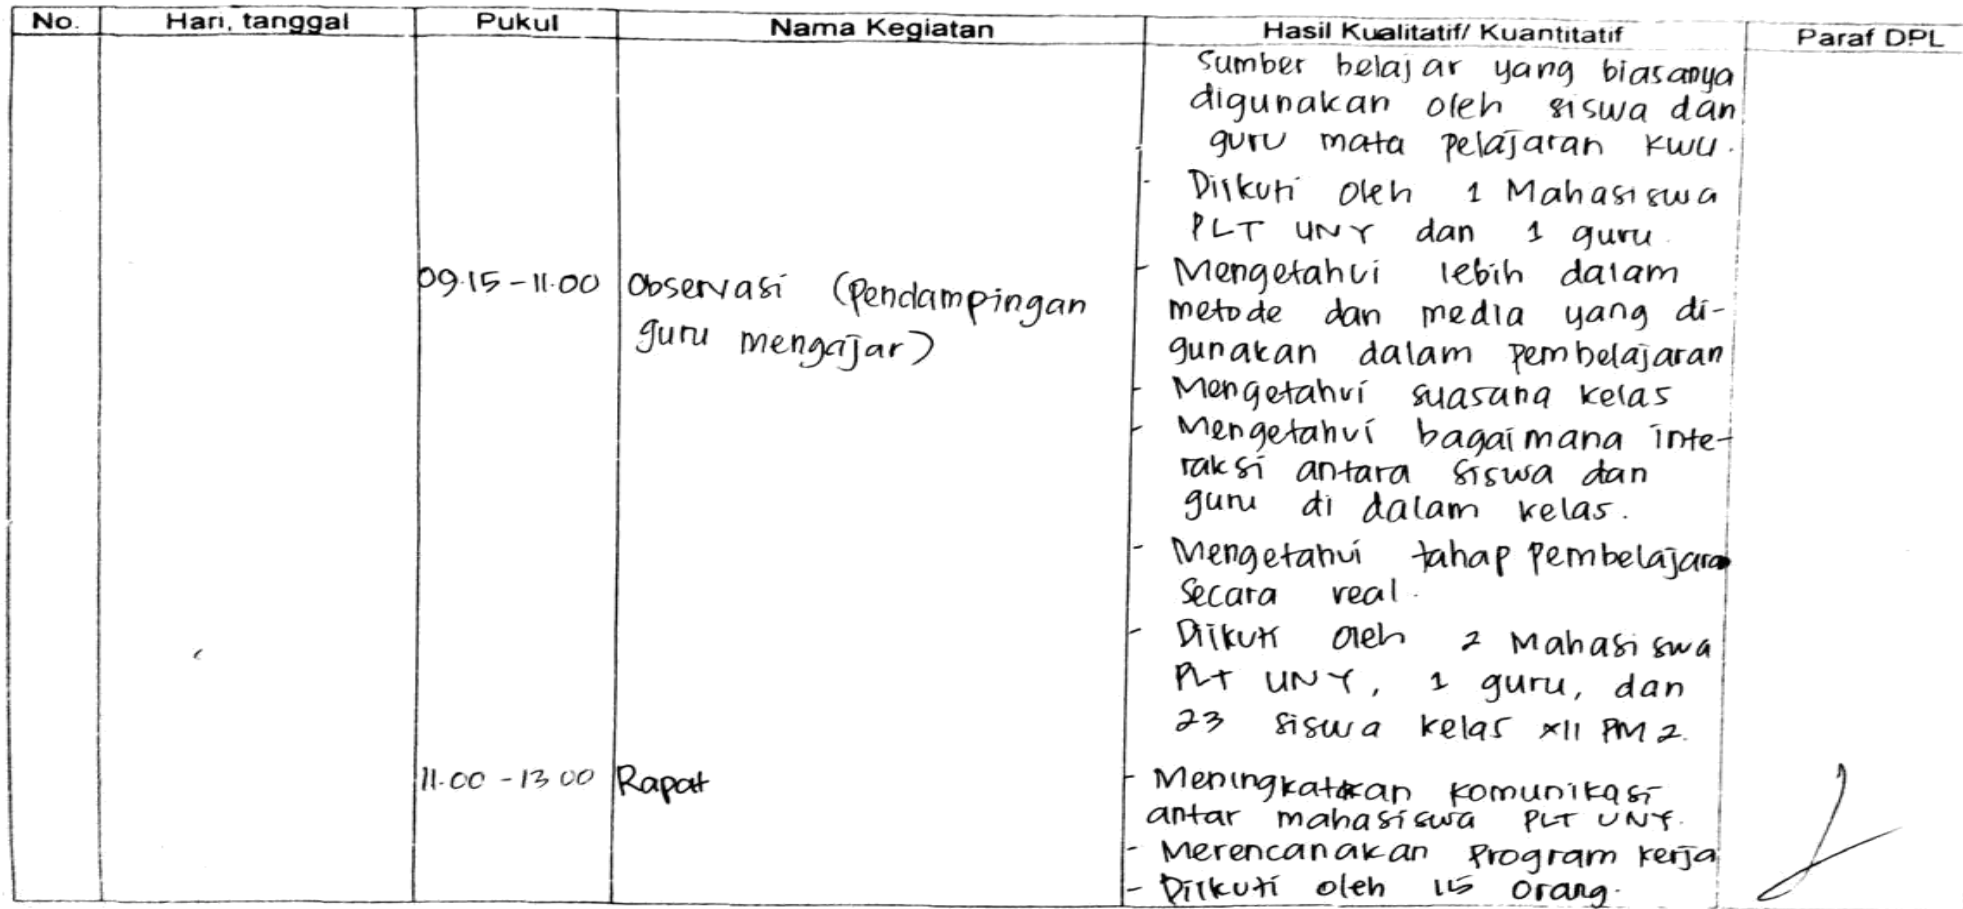 No. Hari, tanggal Pukul Nama Kegiatan Hasil Kualitatif/ Kuantitatif Paraf DPL
Sumber belajar yang biasanya
digunakan oleh siswa dan
guru mata pelajaran KWU.
- Diikuti oleh 1 Mahasiswa
PLT UNY dan 1 guru.
09.15 - 11.00 Observasi (Pendampingan
guru mengajar)
- Mengetahui lebih dalam
metode dan media yang di-
gunakan dalam pembelajaran
- Mengetahui suasana kelas
- Mengetahui bagaimana inte-
raksi antara siswa dan
guru di dalam kelas.
- Mengetahui tahap pembelajaran
secara real.
- Diikuti oleh 2 Mahasiswa
PLT UNY, 1 guru, dan
23 siswa kelas XII PM 2.
11.00 - 13.00 Rapat
- Meningkatkan komunikasi
antar mahasiswa PLT UNY.
- Merencanakan Program kerja
- Diikuti oleh orang.